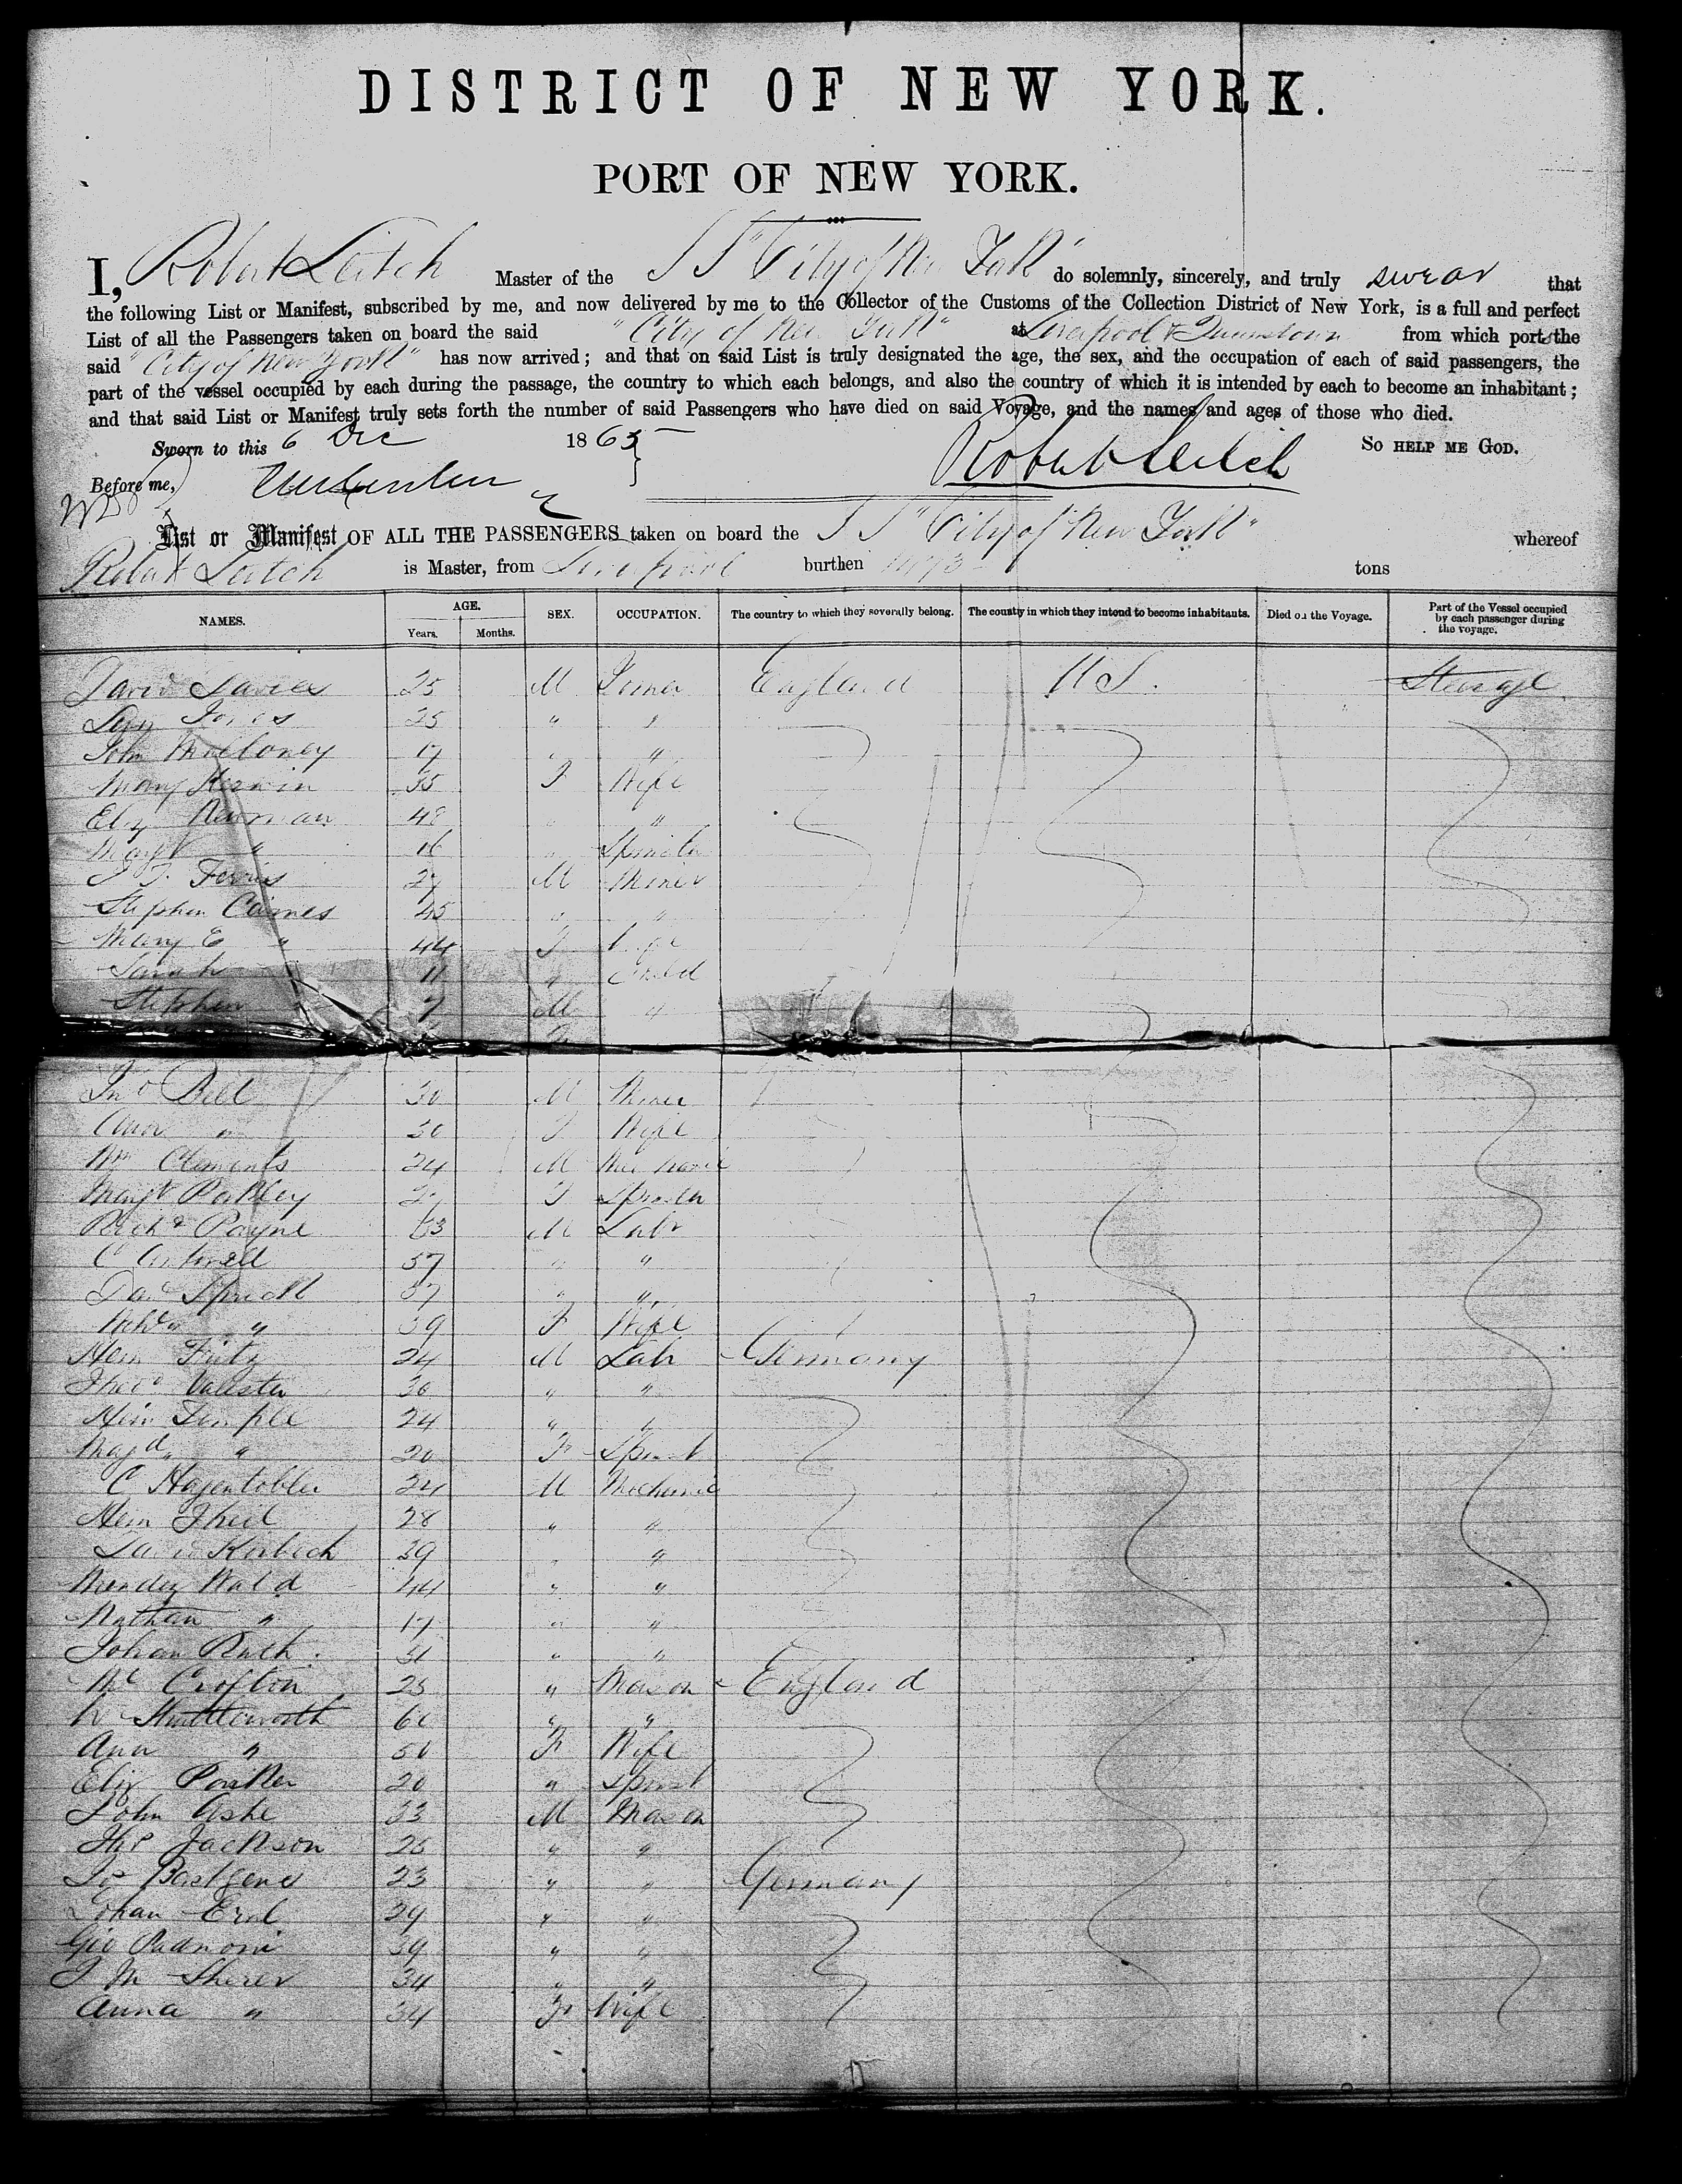 DISTRICT OF NEW YORK.
PORT OF NEW YORK.
I, Robert Leitch Master of the SS "City of New York" do solemnly, sincerely, and truly swear that
the following List or Manifest, subscribed by me, and now delivered by me to the Collector of the Customs of the Collection District of New York, is a full and perfect
List of all the Passengers taken on board the said "City of New York" at Liverpool & Queenstown from which ports the
said "City of New York" has now arrived; and that on said List is truly designated the age, the sex, and the occupation of each of said passengers, the
part of the vessel occupied by each during the passage, the country to which each belongs, and also the country of which it is intended by each to become an inhabitant;
and that said List or Manifest truly sets forth the number of said Passengers who have died on said Voyage, and the names and ages of those who died.
Sworn to this 6 Dec 1865 So help me God.
Before me, Robert Leitch
List or Manifest OF ALL THE PASSENGERS taken on board the SS "City of New York" whereof
Robert Leitch is Master, from Liverpool burthen tons
NAMES. AGE. Years. Months. SEX. OCCUPATION. The country to which they severally belong. The country in which they intend to become inhabitants. Died on the Voyage. Part of the Vessel occupied by each passenger during the voyage.
David Davies 25 M England U S. Steerage
Jones 25 " "
John Mulloney 17 " "
Mary Kerwin 35 F Wife
Eliz Newman 48 " "
Margt " 16 " Spinster
Ferris 27 M Miner
Stephen Caines 45 " "
Mary E " 44 F Wife
Sarah 11 " Child
Stephen 7 M "
Jno Bell 30 M Miner
Ann " 30 F Wife
Wm Clements 24 M Mechanic
Margt F Spinster
Richd Payne 63 M Labr
57 " "
" "
" 39 F Wife
Hein Fritz 24 M Labr Germany
30 " "
Hein Temple 24 " "
Magd " 20 F Spinst
C Hagentobler 24 M Mechanic
Hein Theil 28 " "
David Korbech 29 " "
Mendez Wald 44 " "
Nathan " 17 " "
Johan Ruch 31 " "
Crofton 25 " Mason England
Shuttleworth 60 " "
Ann " 50 F Wife
Eliz Parker 20 " Spinst
John Ashe 33 M Mason
Thos Jackson 26 " "
23 " " Germany
Johan Erd 29 " "
Gio 39 " "
J M Shirer 34 " "
Anna " 34 F Wife